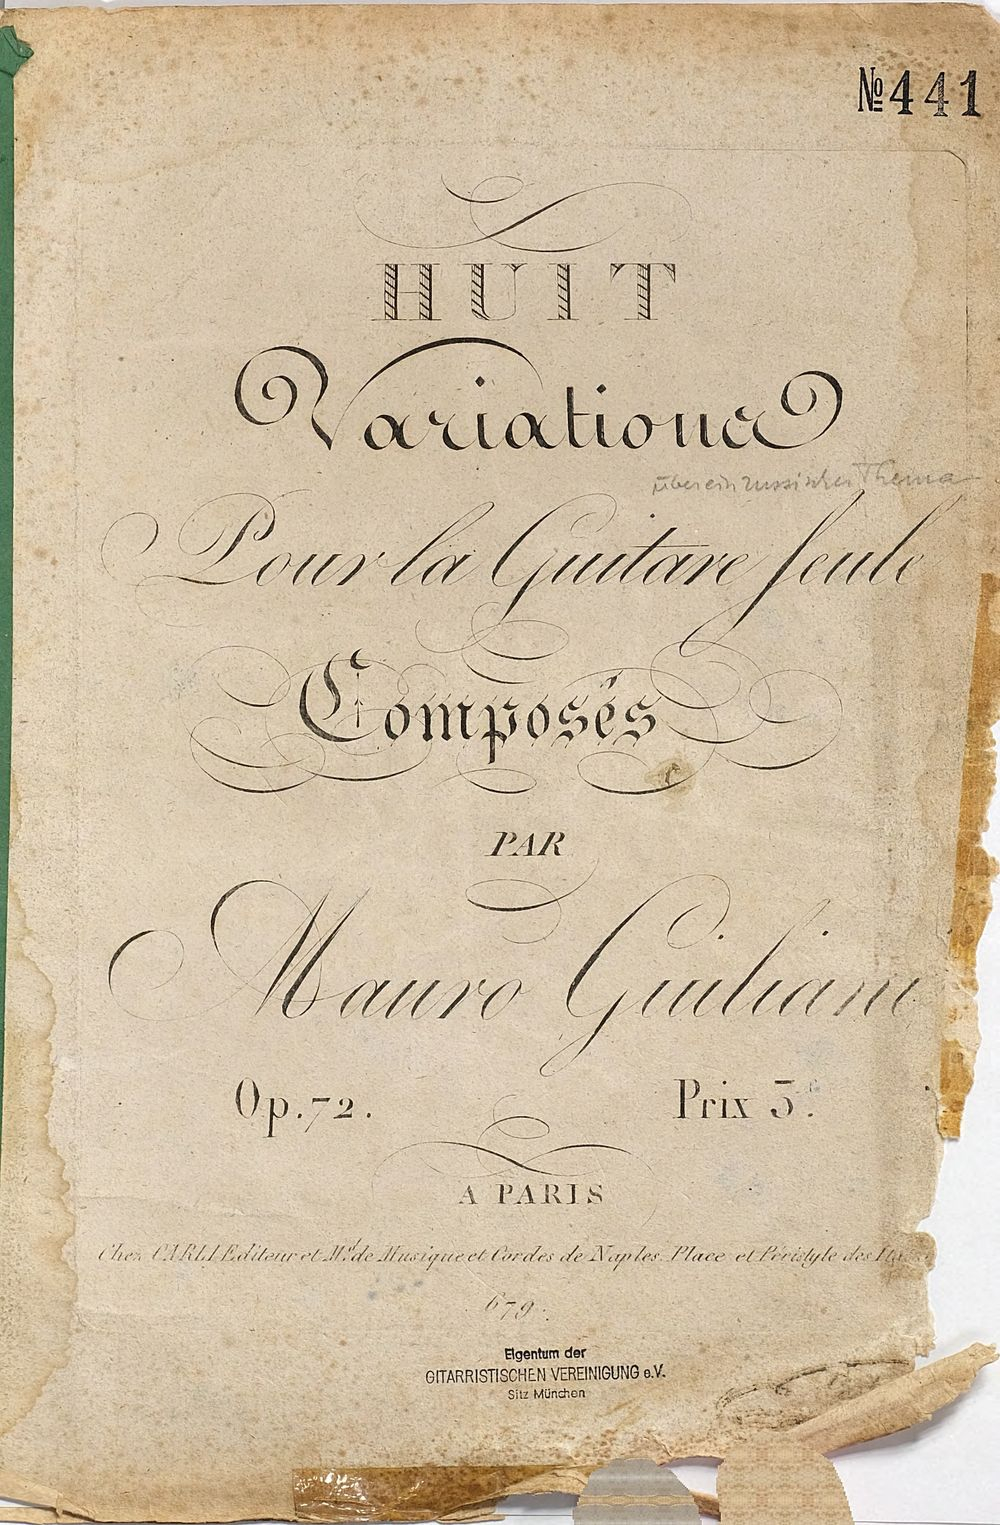 № 441
HUIT
Variations
über ein russisches Thema
Pour la Guitare Seule
Composés
PAR
Mauro Guiliani
Op. 72.
Prix 3.
A PARIS
Chez CARLI Editeur et Md de Musique et Cordes de Naples. Place et Péristyle des
679.
Eigentum der
GITARRISTISCHEN VEREINIGUNG e.V.
Sitz München